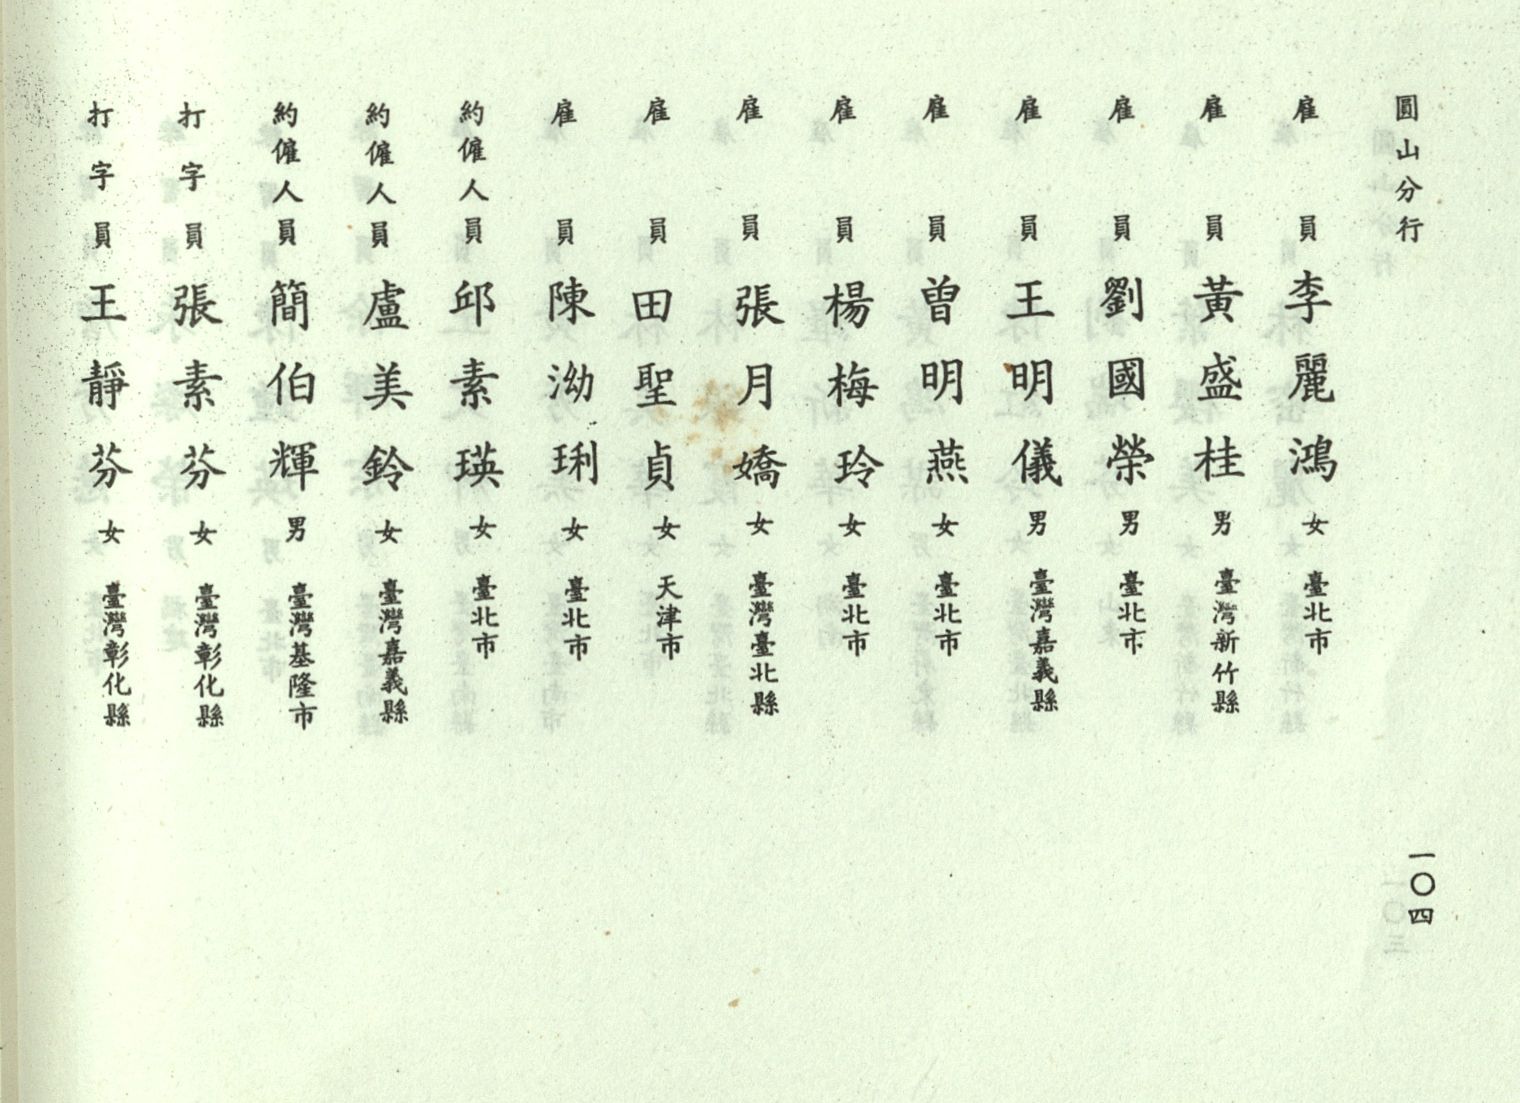 圓山分行
雇員 李麗鴻 女 臺北市
雇員 黃盛桂 男 臺灣新竹縣
雇員 劉國榮 男 臺北市
雇員 王明儀 男 臺灣嘉義縣
雇員 曾明燕 女 臺北市
雇員 楊梅玲 女 臺北市
雇員 張月嬌 女 臺灣臺北縣
雇員 田聖貞 女 天津市
雇員 陳泑琍 女 臺北市
約僱人員 邱素瑛 女 臺北市
約僱人員 盧美鈴 女 臺灣嘉義縣
約僱人員 簡伯輝 男 臺灣基隆市
打字員 張素芬 女 臺灣彰化縣
打字員 王靜芬 女 臺灣彰化縣
一〇四